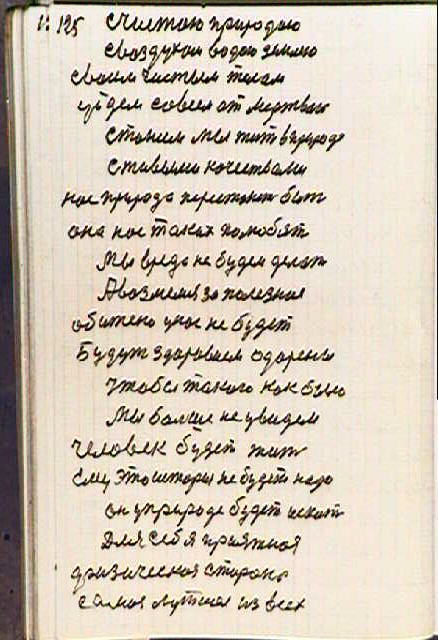 125 с чистою природою
с воздухом водою землею
своим чистым телом
уйдем совсем от мертвых
станем мы жить в природе
с живыми качествами
нас природа перестанет бить
она нас таких полюбят
Мы вреда не будем делат
А возмемся за полезная
обижено у нас не будет
Будут здоровьем одарены
чтобы такого как было
Мы больше не увидем
человек будет жит
ему это шторы не будет надо
он у природе будет искат
для себя приятная
физическая сторона
самая лутшая из всех